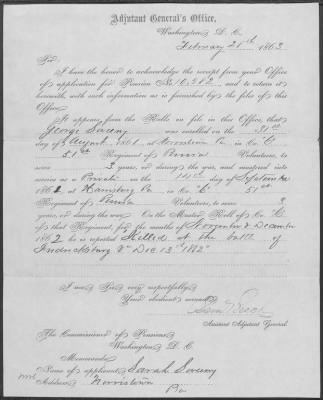 Adjutant General's Office,
Washington, D. C.
February 28th 1863
Sir:
I have the honor to acknowledge the receipt from your Office
of application for Pension No. 10,512, and to return it
herewith, with such information as is furnished by the files of this
Office.
It appears from the Rolls on file in this Office, that
George Sweny was enrolled on the 31st
day of August 1861 at Norristown Pa in Co. "C"
51st Regiment of Penna Volunteers, to
serve 3 years, or during the war, and mustered into
service as a Private on the day of
1861 at Harrisburg Pa in Co. "C" 51st
Regiment of Penna Volunteers, to serve 3
years, or during the war. On the Muster Roll of Co. "C"
of that Regiment, for the months of November & December
1862 he is reported Killed at the battle of
Fredricksburg Va Dec 13th 1862
I am Sir very respectfully,
Your obedient servant,
Assistant Adjutant General.
The Commissioner of Pensions
Washington D. C.
Memoranda
Name of applicant Sarah Sweny
Address Norristown
Pa